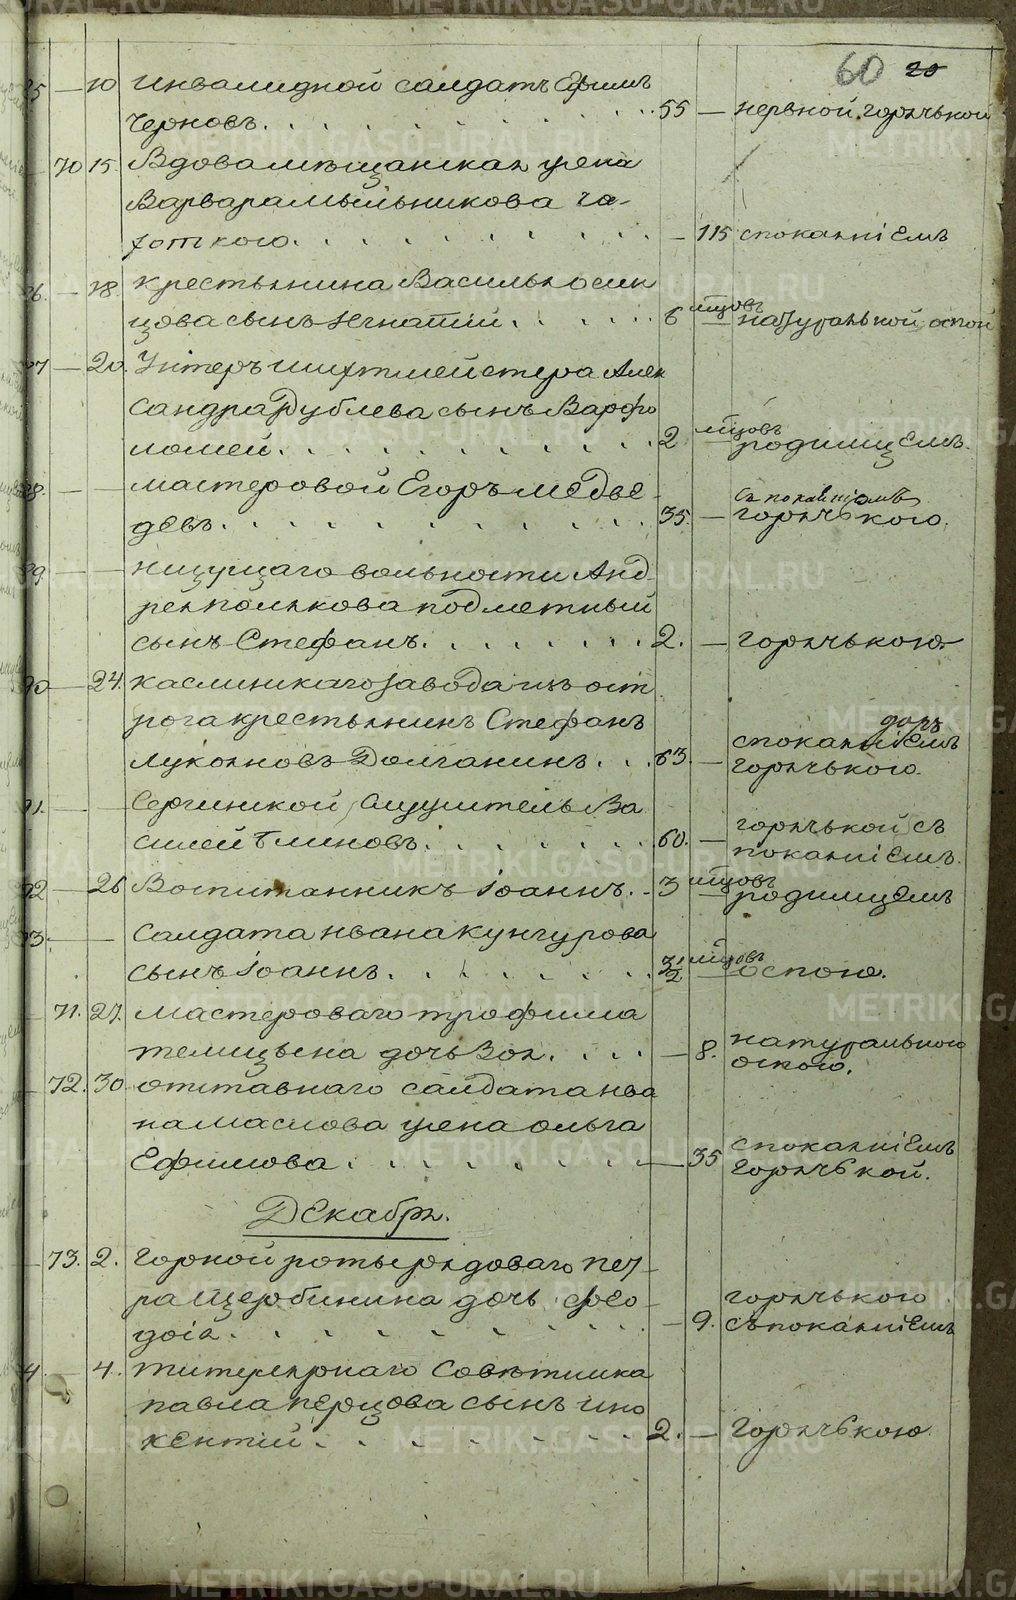 60 20
85 — 10 Инвалидной салдатъ Ефимъ
Черновъ. 55 — нервной горячькой
70 15. Вдова мѣщанская жена
Варвара Мыльникова ча-
хоткою. — 115 с покаяніемъ
86. — 18. крестьянина Василья Осин
цова сынъ Игнатій. 6 мцовъ — натуралькой оспой
87 — 20. Унтеръ шихтмейстера Алек
сандра Рублева сынъ Варфо
ломей. 2 мцовъ — родимцемъ.
88. — — мастеровой Егоръ Медве
девъ. 35. — с покаяніемъ
горячькою.
89 — — ищущаго вольности Анд
рея Полякова подметный
сынъ Стефанъ. 2. — горячькою.
90 — 24. каслинскаго завода изъ ост
рога крестьянинъ Стефанъ
Лукояновъ Долганинъ. 63. — с покаяніемъ
горячькою.
91. — — Сергинской Служитель Ва
силей Блиновъ. 60. — горячькой съ
покаяніемъ.
92 — 26 Воспитанникъ Іоаннъ. 3 мцовъ — родимцемъ
93. — — Салдата Ивана Кунгурова
сынъ Іоаннъ. 3 1/2 мцовъ — оспою.
71. 27. мастероваго Трофима
Телицына дочь Зоя. — 8. натуральною
оспою.
72. 30. отставнаго салдата Ива
на Маслова жена Ольга
Ефимова. — 35 с покаяніемъ
горячькой.
Декабрь.
73. 2. Горной роты рядоваго Пет
ра Щербинина дочь Фео-
досія. — 9. горячькою
съ покаяніемъ
94 — 4. титулярнаго Совѣтника
Павла Перцова сынъ Ино
кентій. 2. — Горячькою.
METRIKI.GASO-URAL.RU